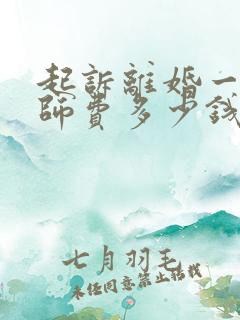 起訴離婚一
師費多少錢
七月羽毛
未经同意禁止搭载